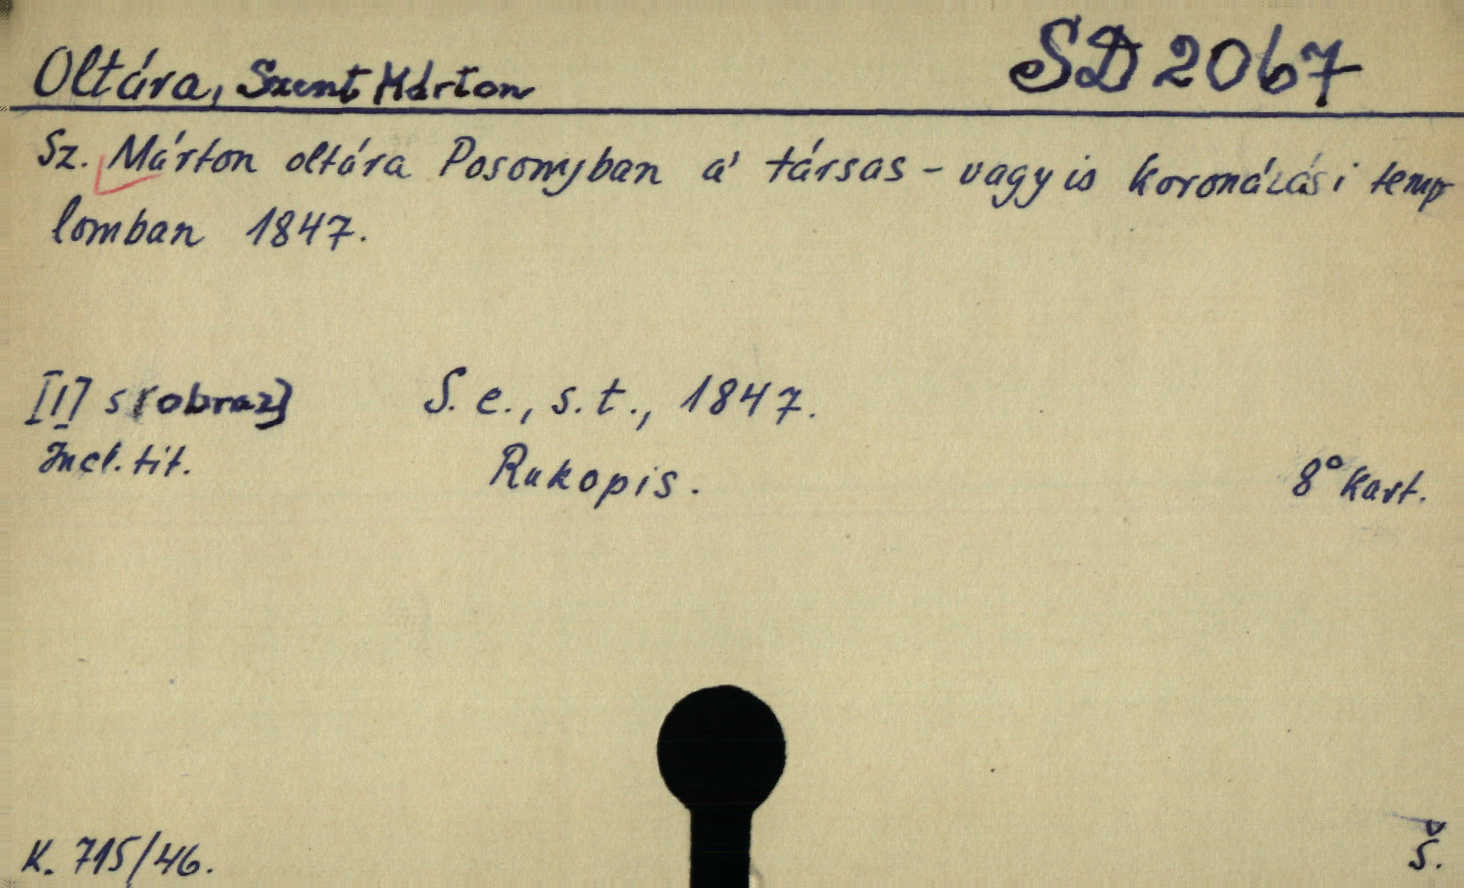 Oltára, Szent Márton SD 2067
Sz. Márton oltára Posonyban a' társas - vagyis koronázási temp
lomban 1847.
[1] s [obraz] S. e., s. t., 1847.
Incl. tit. Rukopis. 8° Kart.
K. 715/46. Š.